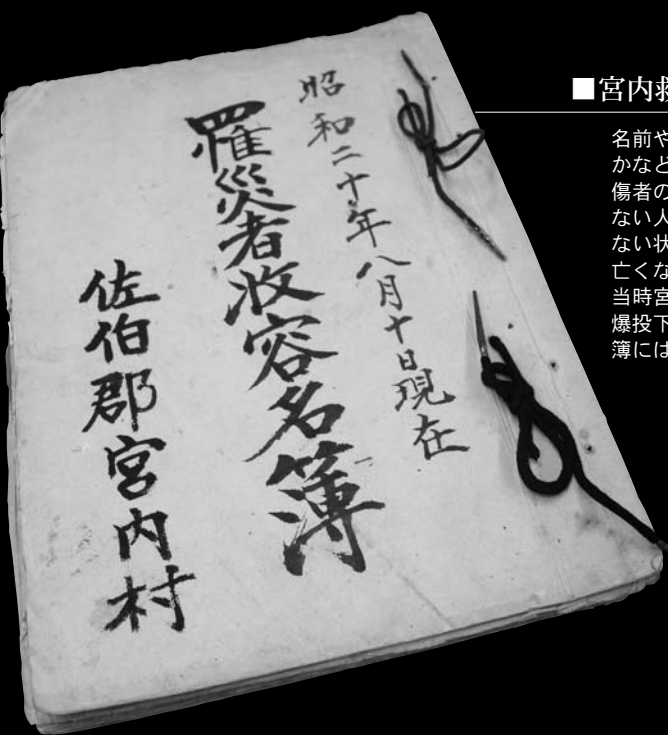 昭和二十年八月十日現在
罹災者收容名簿
佐伯郡宮内村
■宮内救
名前や
かなど
傷者の
ない人
ない状
亡くな
当時宮
爆投下
簿には